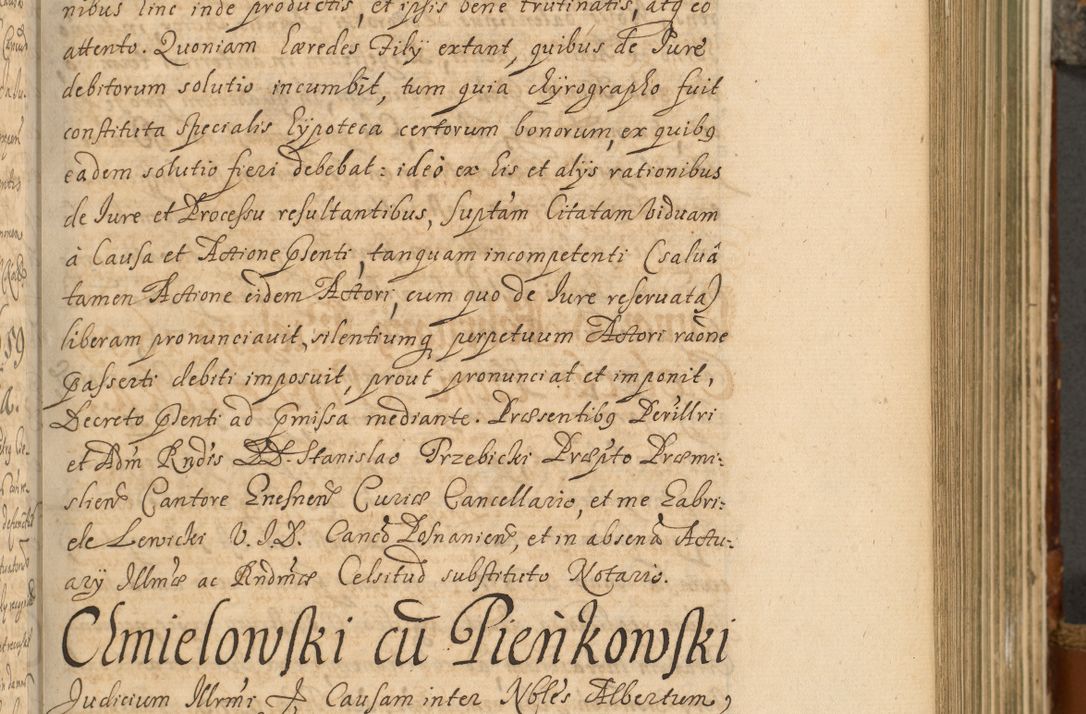 nibus hinc inde productis, et ipsis bene trutinatis, atq eo
attento. Quoniam hæredes Filij extant, quibus de Jure
debitorum solutio incumbit, tum quia chyrographo fuit
constituta specialis hypoteca certorum bonorum, ex quibq
eadem solutio fieri debebat: ideò ex his et alijs rationibus
de Jure et Processu resultantibus, suptam Citatam viduam
à Causa et Actione pñsenti, tanquam incompetenti (salvâ
tamen Actione eidem Actori, cum quo de Jure reservata)
liberam pronunciavit, silentiumq perpetuum Actori raõne
passerti debiti imposuit, prout pronunciat et imponit,
Decreto pñsenti ad pmissa mediante. Præsentibq Perillri
et Adm Rndis DD. Stanislao Przebicki Præpto Præmi:
slien Cantore Gnesnen Curiæ Cancellario, et me Gabri:
ele Lewicki V.J.D. Canco Posnanien, et in absena Actu:
arij Illmæ ac Rndmæ Celsitud substituto Notario.
Chmielowski cũ Pieńkowski
Judicium Illrmi Causam inter Nobles Albertum,